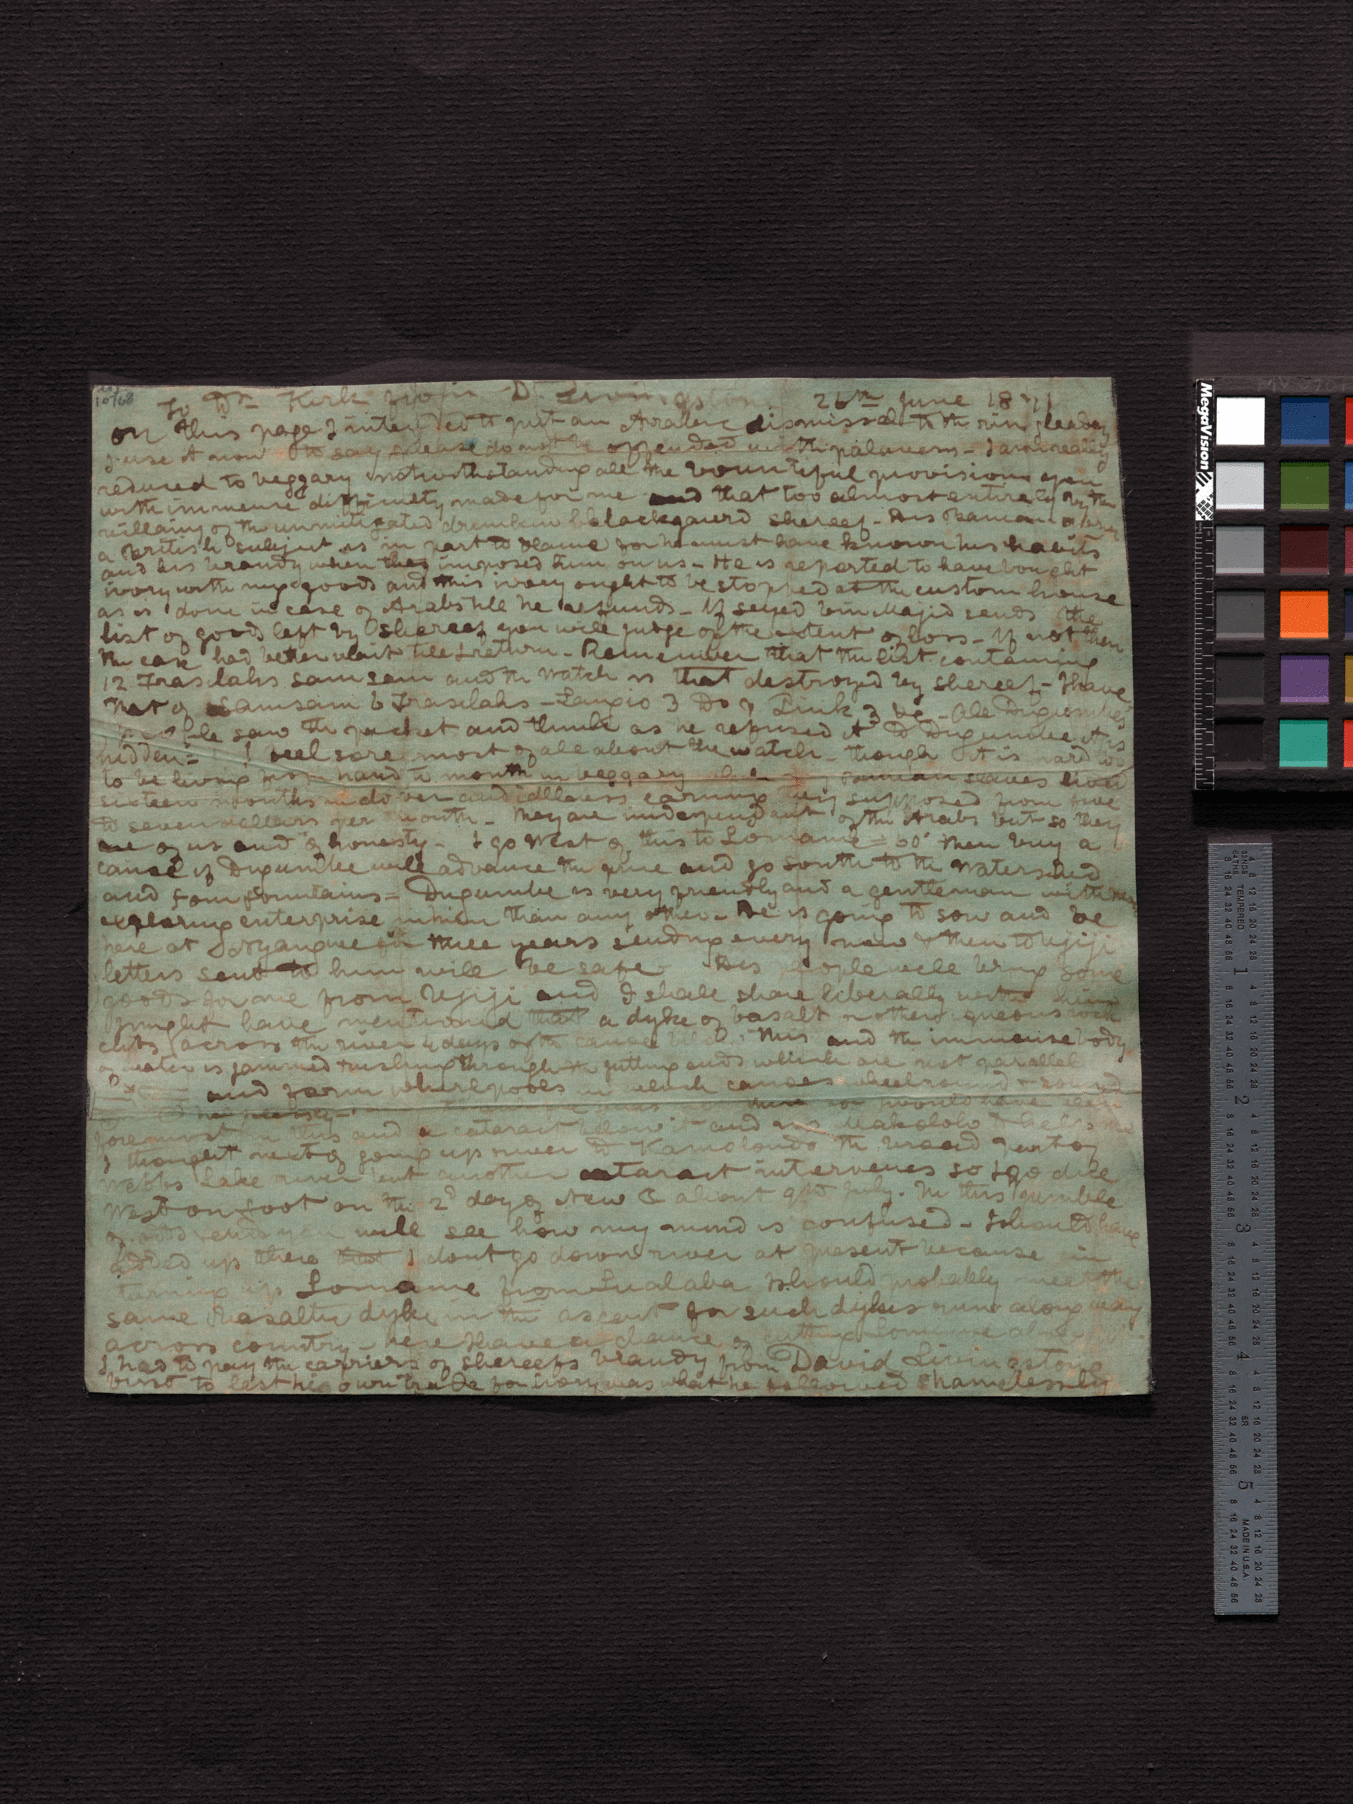 10768
To Dr Kirk from Dr Livingstone 26th June 1871
On this page I intended to put an Arabic dismissal to the ringleaders
I use it now to say please do not be offended with palavers - I am really
reduced to beggary notwithstanding all the bountiful provision you
with immense difficulty made for me and that too almost entirely by the
villainy of the unmitigated drunken blackguard shereef - His Banian
a British subject is in part to blame for he must have known his habits
and his brandy when they imposed him on us - He is reported to have bought
ivory with my goods and this ivory ought to be stopped at the custom house
as is done in case of Arabs till he refunds - If seyed bin Majid sends the
list of goods left by shereef you will judge of the extent of loss - If not then
the case had better wait till I return - Remember that the list containing
12 Frasilahs samsam and the watch is that destroyed by shereef - I have
Not of samsam 6 Frasilahs - 3 Do & Pink 3 Do - all Dugumbe's
people saw the packet and think as he refused it to Dugumbe it is
hidden = I feel sore most of all about the watch - though it is hard too
to be living from hand to mouth in beggary when my banian slaves lived
sixteen months in clover and idleness earning they supposed from five
to seven dollars per month - They are independent of the Arabs but so they
are of us and of honesty - I go West of this to Lomame = 60 men buy a
canoe if Dugumbe will advance the price and go south to the watershed
and four fountains = Dugumbe is very friendly and a gentleman with more
exploring enterprise within than any other - He is going to sow and be
here at Nyangwe for three years sending every now & then to Ujiji
letters sent to him will be safe His people will bring some
goods for me from Ujiji and I shall share liberally with him
I might have mentioned that a dyke of basalt or other igneous rock
cuts across the river 4 days off the canoe This and the immense body
of water is jammed & rushing through the jutting ends which are not parallel
and form whirlpools in which canoes wheel round & round
foremost in this and a cataract below it and no Makololo to help me
I thought next of going up river to Kamolondo the broad part of
Webb's Lake river but another cataract intervenes so I go due
West on foot on the 2d day of New ☾ about 9th July. In this jumble
of odds & ends you will see how my mind is confused - I shou'd have
added up there that I dont go down river at present because in
turning up Lomame from Lualaba I should probably meet the
same basaltic dyke in the ascent for such dykes run along way
across country - here I have a chance of cutting Lomame above
I had to pay the carriers of shereefs brandy from David Livingstone
Burst to last his own trade for ivory was what he followed shamelessly